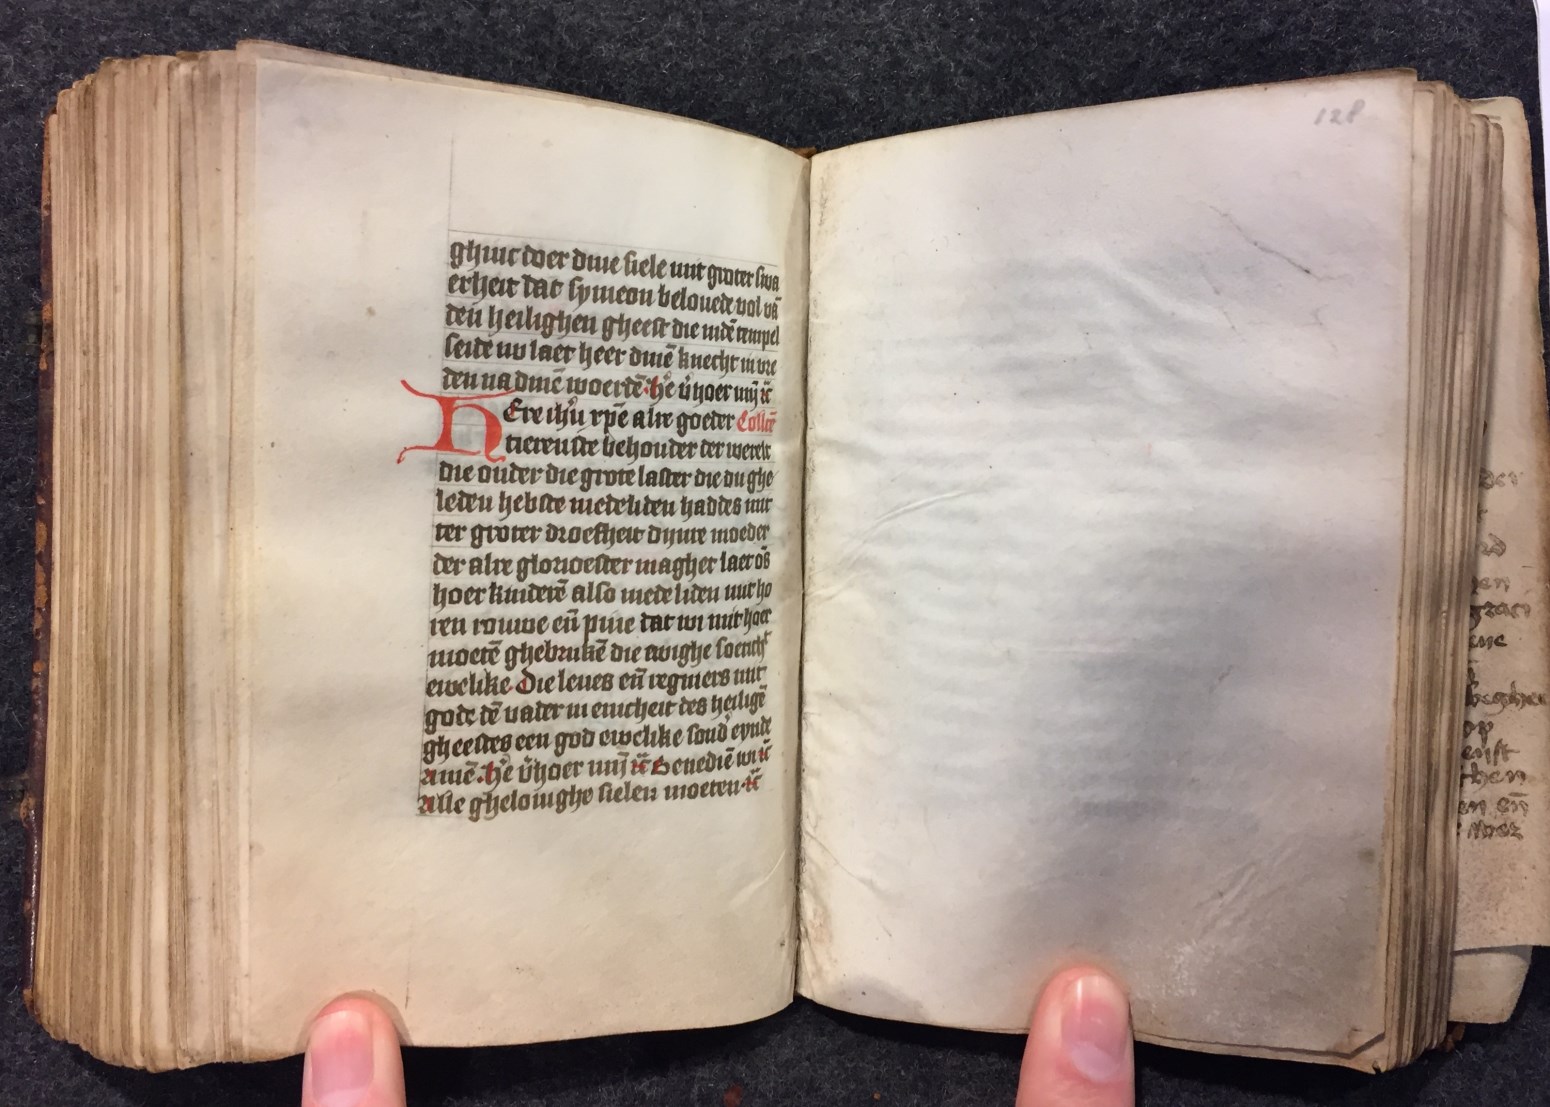 ghinc doer dine siele mit groter swa
erheit dat symeon belouede vol vā
den heilighen gheest die indē tempel
seide nu laet heer dinē knecht in vre
den na dinē woerdē· he v̄hoer mij ꝛc̄
HEre ihū xpē alre goeder Collcē
tierenste behouder der werelt
die onder die grote laster die du ghe
leden hebste medeliden haddes mit
ter groter droefheit dijnre moeder
der alre glorioester magher laet os̄
hoer kinderē also mede liden mit ho
ren rouwe eñ pine dat wi mit hoer
moetē ghebrukē die ewighe
ewelike Die leues eñ regniers mit
gode dē vader in enicheit des heiligē
gheestes een god ewelike sond' eynde
amē· he v̄hoer mij ꝛc̄ Benediē wi ꝛc̄
Alle ghelouighe sielen moeten· ꝛc̄
128
der
gen
graci
beghe
op
then
en eñ